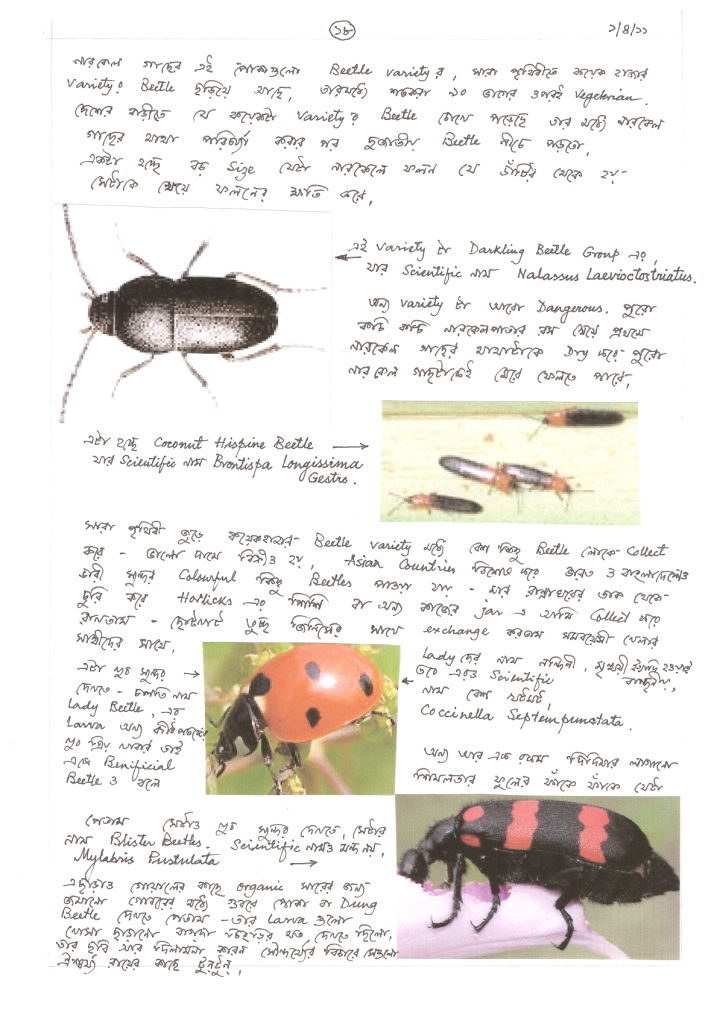 ১৮
১/৪/১১
নারকেল গাছের এই পোকাগুলো Beetle variety র, সারা পৃথিবীতে কয়েক হাজার
Variety র Beetle ছড়িয়ে আছে, তারমধ্যে শতকরা ৯০ ভাগের ওপরই Vegetarian.
দেশের বাড়ীতে যে কয়েকটা Variety র Beetle চোখে পড়েছে তার মধ্যে নারকেল
গাছের মাথা পরিচর্য্যা করার পর দুজাতীয় Beetle নীচে পড়তো,
একটা হচ্ছে বড় Size যেটা নারকেলের ফলন যে ডাঁটির থেকে হয়-
সেটাকে খেয়ে ফলনের ক্ষতি করে,
এই variety টা Darkling Beetle Group এর,
যার Scientific নাম Nalassus Laevioctostriatus.
অন্য variety টা আরো Dangerous. পুরো
কচি কচি নারকেলপাতার রস খেয়ে প্রথমে
নারকেল গাছের মাথাটাকে Dry করে পুরো
নারকেল গাছটাকেই মেরে ফেলতে পারে,
এটা হচ্ছে Coconut Hispine Beetle
যার Scientific নাম Brontispa Longissima
Gestro.
সারা পৃথিবী জুড়ে কয়েকহাজার Beetle variety মধ্যে বেশ কিছু Beetle লোকে Collect
করে - ভালো দামে বিক্রীও হয়, Asian Countries বিশেষ করে ভারত ও বাংলাদেশেও
ভারী সুন্দর Colourful কিছু Beetles পাওয়া যায় - মার রান্নাঘরের তাক থেকে-
চুরি করে Horlicks এর শিশি বা অন্য কাজের Jar এ আমি Collect করে
রাখতাম - ছোটখাট তুচ্ছ জিনিসের সাথে exchange করতাম সমবয়েসী খেলার
সাথীদের সাথে,
এটা খুব সুন্দর
দেখতে - চলতি নাম
Lady Beetle, এর
Larva অন্য কীটপতঙ্গের
খুব প্রিয় খাবার তাই
একে Benificial
Beetle ও বলে
Lady দের নাম নন্দিনী, মৃন্ময়ী ইত্যাদি হওয়াই
তবে এরও Scientific বাঞ্ছনীয়,
নাম বেশ খটমট,
Coccinella Septempunctata.
অন্য আর এক রকম দিদিমার লাগানো
শিমলতার ফুলের ফাঁকে ফাঁকে যেটা
পেতাম সেটাও খুব সুন্দর দেখতে, সেটার
নাম Blister Beetles. Scientific নামও মন্দ নয়,
Mylabris Pustulata
এছাড়াও গোয়ালের কাছে organic সারের জন্য
জমানো গোবরের মধ্যে গুবরে পোকা বা Dung
Beetle দেখতে পেতাম - তার Larva গুলো
খোসা ছাড়ানো বাগদা চিংড়ির মত দেখতে ছিলো,
তার ছবি আর দিলামনা কারন সৌন্দর্য্যের বিচারে সেগুলো
ঐশ্বর্য্য রায়ের কাছে টুনটুন,